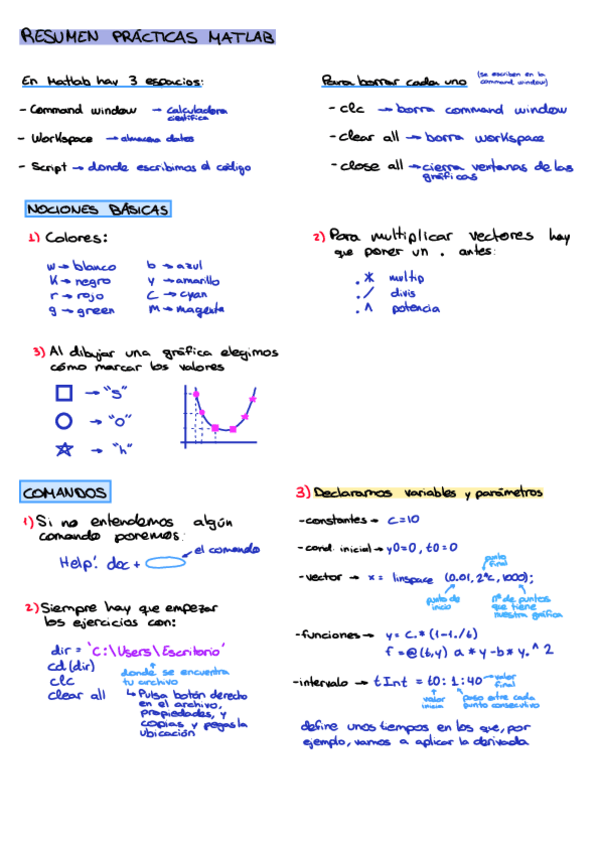 RESUMEN PRÁCTICAS MATLAB
En Matlab hay 3 espacios:
- Command window → calculadora científica
- Workspace → almacena datos
- Script → donde escribimos el código
Para borrar cada uno (se escriben en la command window)
- clc → borra command window
- clear all → borra workspace
- close all → cierra ventanas de las gráficas
NOCIONES BÁSICAS
1) Colores:
w → blanco
K → negro
r → rojo
g → green
b → azul
y → amarillo
C → cyan
M → magenta
2) Para multiplicar vectores hay
que poner un . antes:
.* multip
./ divis
.^ potencia
3) Al dibujar una gráfica elegimos
cómo marcar los valores
→ "s"
→ "o"
→ "h"
COMANDOS
1) Si no entendemos algún
comando ponemos:
Help: doc +
el comando
2) Siempre hay que empezar
los ejercicios con:
dir = 'C:\Users\Escritorio'
cd (dir)
clc
clear all
donde se encuentra
tu archivo
↳ Pulsa botón derecho
en el archivo,
propiedades, y
copias y pegas la
ubicación
3) Declaramos variables y parámetros
- constantes → C=10
- cond. inicial → y0=0, t0=0
punto final
- vector → x = linspace (0.01, 2*c, 1000);
punto de inicio
nº de puntos
que tiene
nuestra gráfica
- funciones → y = c.*(1-1./6)
f = @(t,y) a*y-b*y.^2
- intervalo → tInt = t0:1:40 → valor final
valor inicia
paso entre cada
punto consecutivo
define unos tiempos en los que, por
ejemplo, vamos a aplicar la derivada